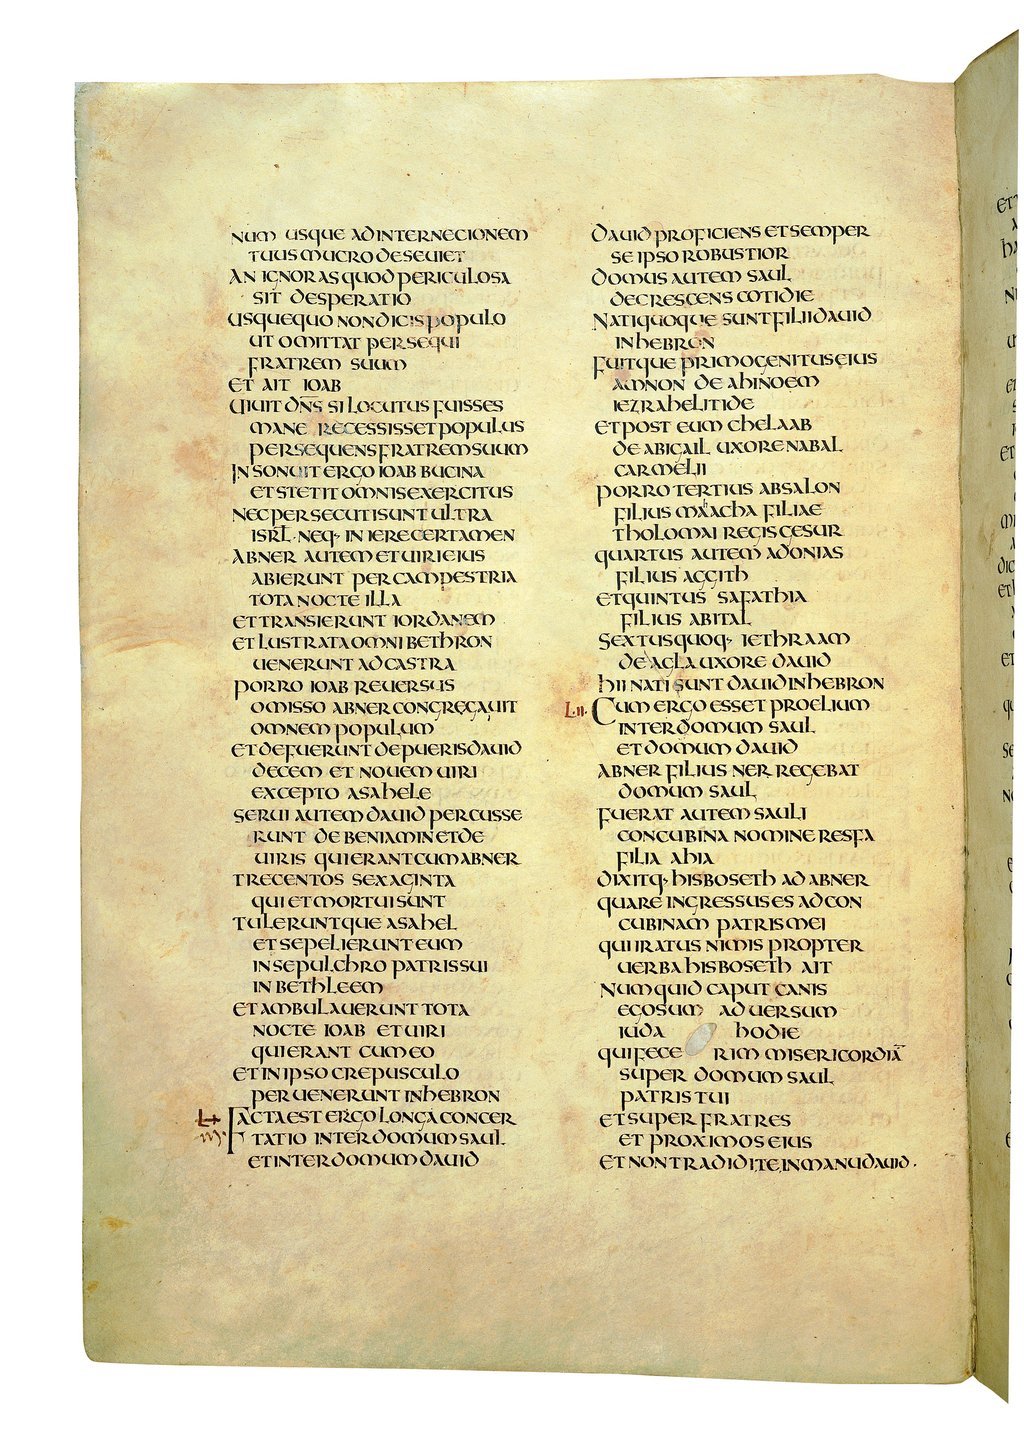 NUM USQUE AD INTERNECIONEM
TUUS MUCRO DESEUIET
AN IGNORAS QUOD PERICULOSA
SIT DESPERATIO
USQUEQUO NON DICIS POPULO
UT OMITTAT PERSEQUI
FRATREM SUUM
ET AIT IOAB
UIUIT DN̅S SI LOCUTUS FUISSES
MANE RECESSISSET POPULUS
PERSEQUENS FRATREM SUUM
INSONUIT ERGO IOAB BUCINA
ET STETIT OMNIS EXERCITUS
NEC PERSECUTI SUNT ULTRA
ISRL̅· NEQ· INIERE CERTAMEN
ABNER AUTEM ET UIRI EIUS
ABIERUNT PER CAMPESTRIA
TOTA NOCTE ILLA
ET TRANSIERUNT IORDANEM
ET LUSTRATA OMNI BETHRON
UENERUNT AD CASTRA
PORRO IOAB REUERSUS
OMISSO ABNER CONGREGAUIT
OMNEM POPULUM
ET DEFUERUNT DE PUERIS DAUID
DECEM ET NOUEM UIRI
EXCEPTO ASAHELE
SERUI AUTEM DAUID PERCUSSE
RUNT DE BENIAMIN ET DE
UIRIS QUI ERANT CUM ABNER
TRECENTOS SEXAGINTA
QUI ET MORTUI SUNT
TULERUNTQUE ASAHEL
ET SEPELIERUNT EUM
IN SEPULCHRO PATRIS SUI
IN BETHLEEM
ET AMBULAUERUNT TOTA
NOCTE IOAB ET UIRI
QUI ERANT CUM EO
ET IN IPSO CREPUSCULO
PERUENERUNT IN HEBRON
FACTA EST ERGO LONGA CONCER
TATIO INTER DOMUM SAUL
ET INTER DOMUM DAUID
DAUID PROFICIENS ET SEMPER
SE IPSO ROBUSTIOR
DOMUS AUTEM SAUL
DECRESCENS COTIDIE
NATI QUOQUE SUNT FILII DAUID
IN HEBRON
FUITQUE PRIMOGENITUS EIUS
AMNON DE AHINOEM
IEZRAHELITIDE
ET POST EUM CHELAAB
DE ABIGAIL UXORE NABAL
CARMELII
PORRO TERTIUS ABSALON
FILIUS MAACHA FILIAE
THOLOMAI REGIS GESUR
QUARTUS AUTEM ADONIAS
FILIUS AGGITH
ET QUINTUS SAFATHIA
FILIUS ABITAL
SEXTUS QUOQ· IETHRAAM
DE AGLA UXORE DAUID
HII NATI SUNT DAUID IN HEBRON
L·II· CUM ERGO ESSET PROELIUM
INTER DOMUM SAUL
ET DOMUM DAUID
ABNER FILIUS NER REGEBAT
DOMUM SAUL
FUERAT AUTEM SAULI
CONCUBINA NOMINE RESFA
FILIA AHIA
DIXITQ· HISBOSETH AD ABNER
QUARE INGRESSUS ES AD CON
CUBINAM PATRIS MEI
QUI IRATUS NIMIS PROPTER
UERBA HISBOSETH AIT
NUMQUID CAPUT CANIS
EGO SUM ADUERSUM
IUDA HODIE
QUI FECERIM MISERICORDIA̅
SUPER DOMUM SAUL
PATRIS TUI
ET SUPER FRATRES
ET PROXIMOS EIUS
ET NON TRADIDI TE IN MANU DAUID·